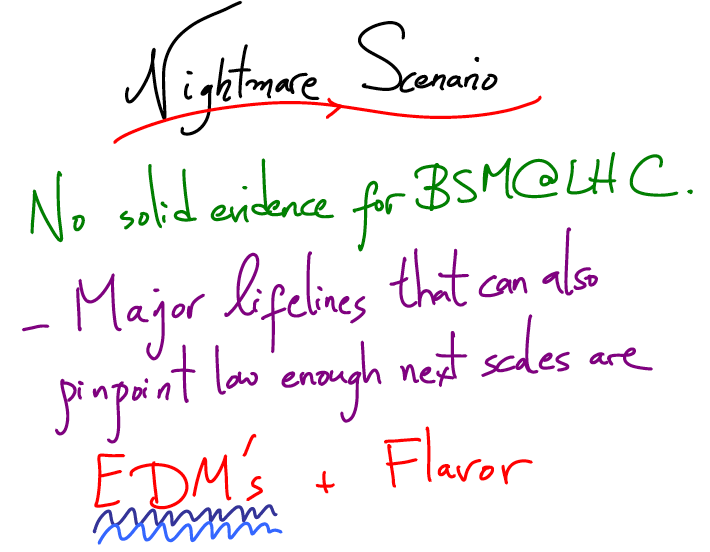 Nightmare Scenario
No solid evidence for BSM@LHC.
- Major lifelines that can also
pinpoint low enough next scales are
EDM's + Flavor